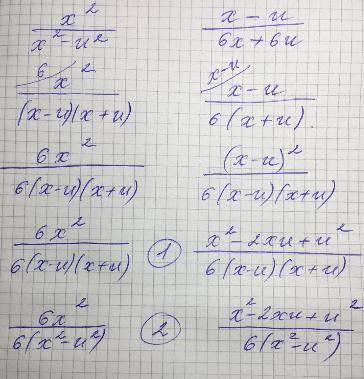 x²/(x²-u²)    (x-u)/(6x+6u)
⁶⁄ x²/((x-u)(x+u))    ˣ⁻ᵘ⁄ (x-u)/(6(x+u)).
6x²/(6(x-u)(x+u))    (x-u)²/(6(x-u)(x+u))
6x²/(6(x-u)(x+u))    ①    (x²-2xu+u²)/(6(x-u)(x+u))
6x²/(6(x²-u²))    ②    (x²-2xu+u²)/(6(x²-u²))